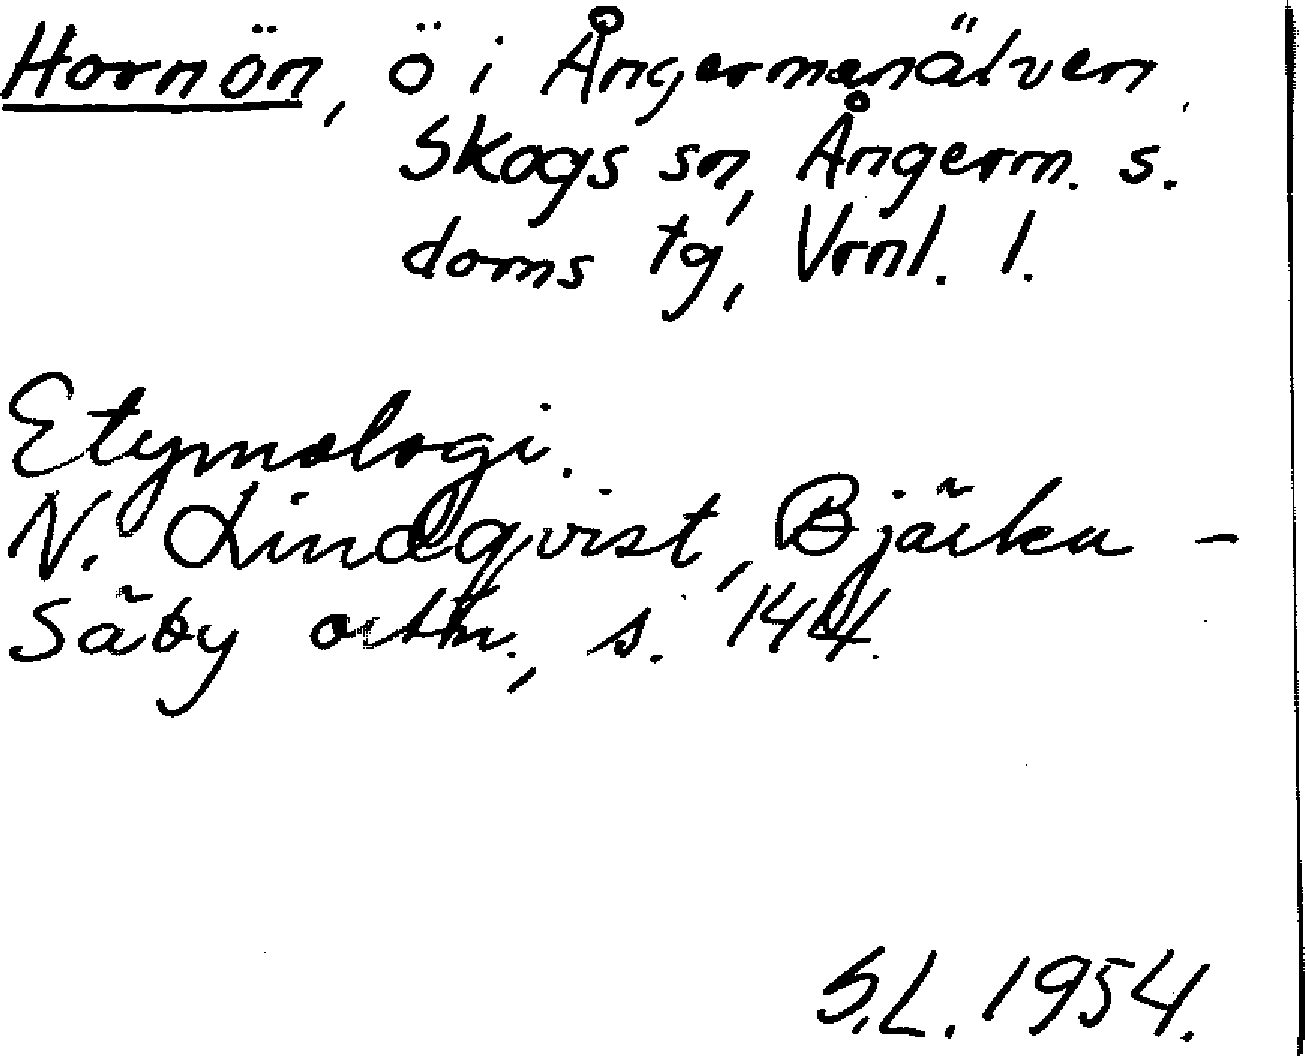 Hornön, ö i Ångermanälven.
Skogs sn, Ångerm. s.
doms tg, Vrnl. l.
Etymologi.
N. Lindqvist, Bjärka -
Säby ortn., s. 144.
S.L. 1954.